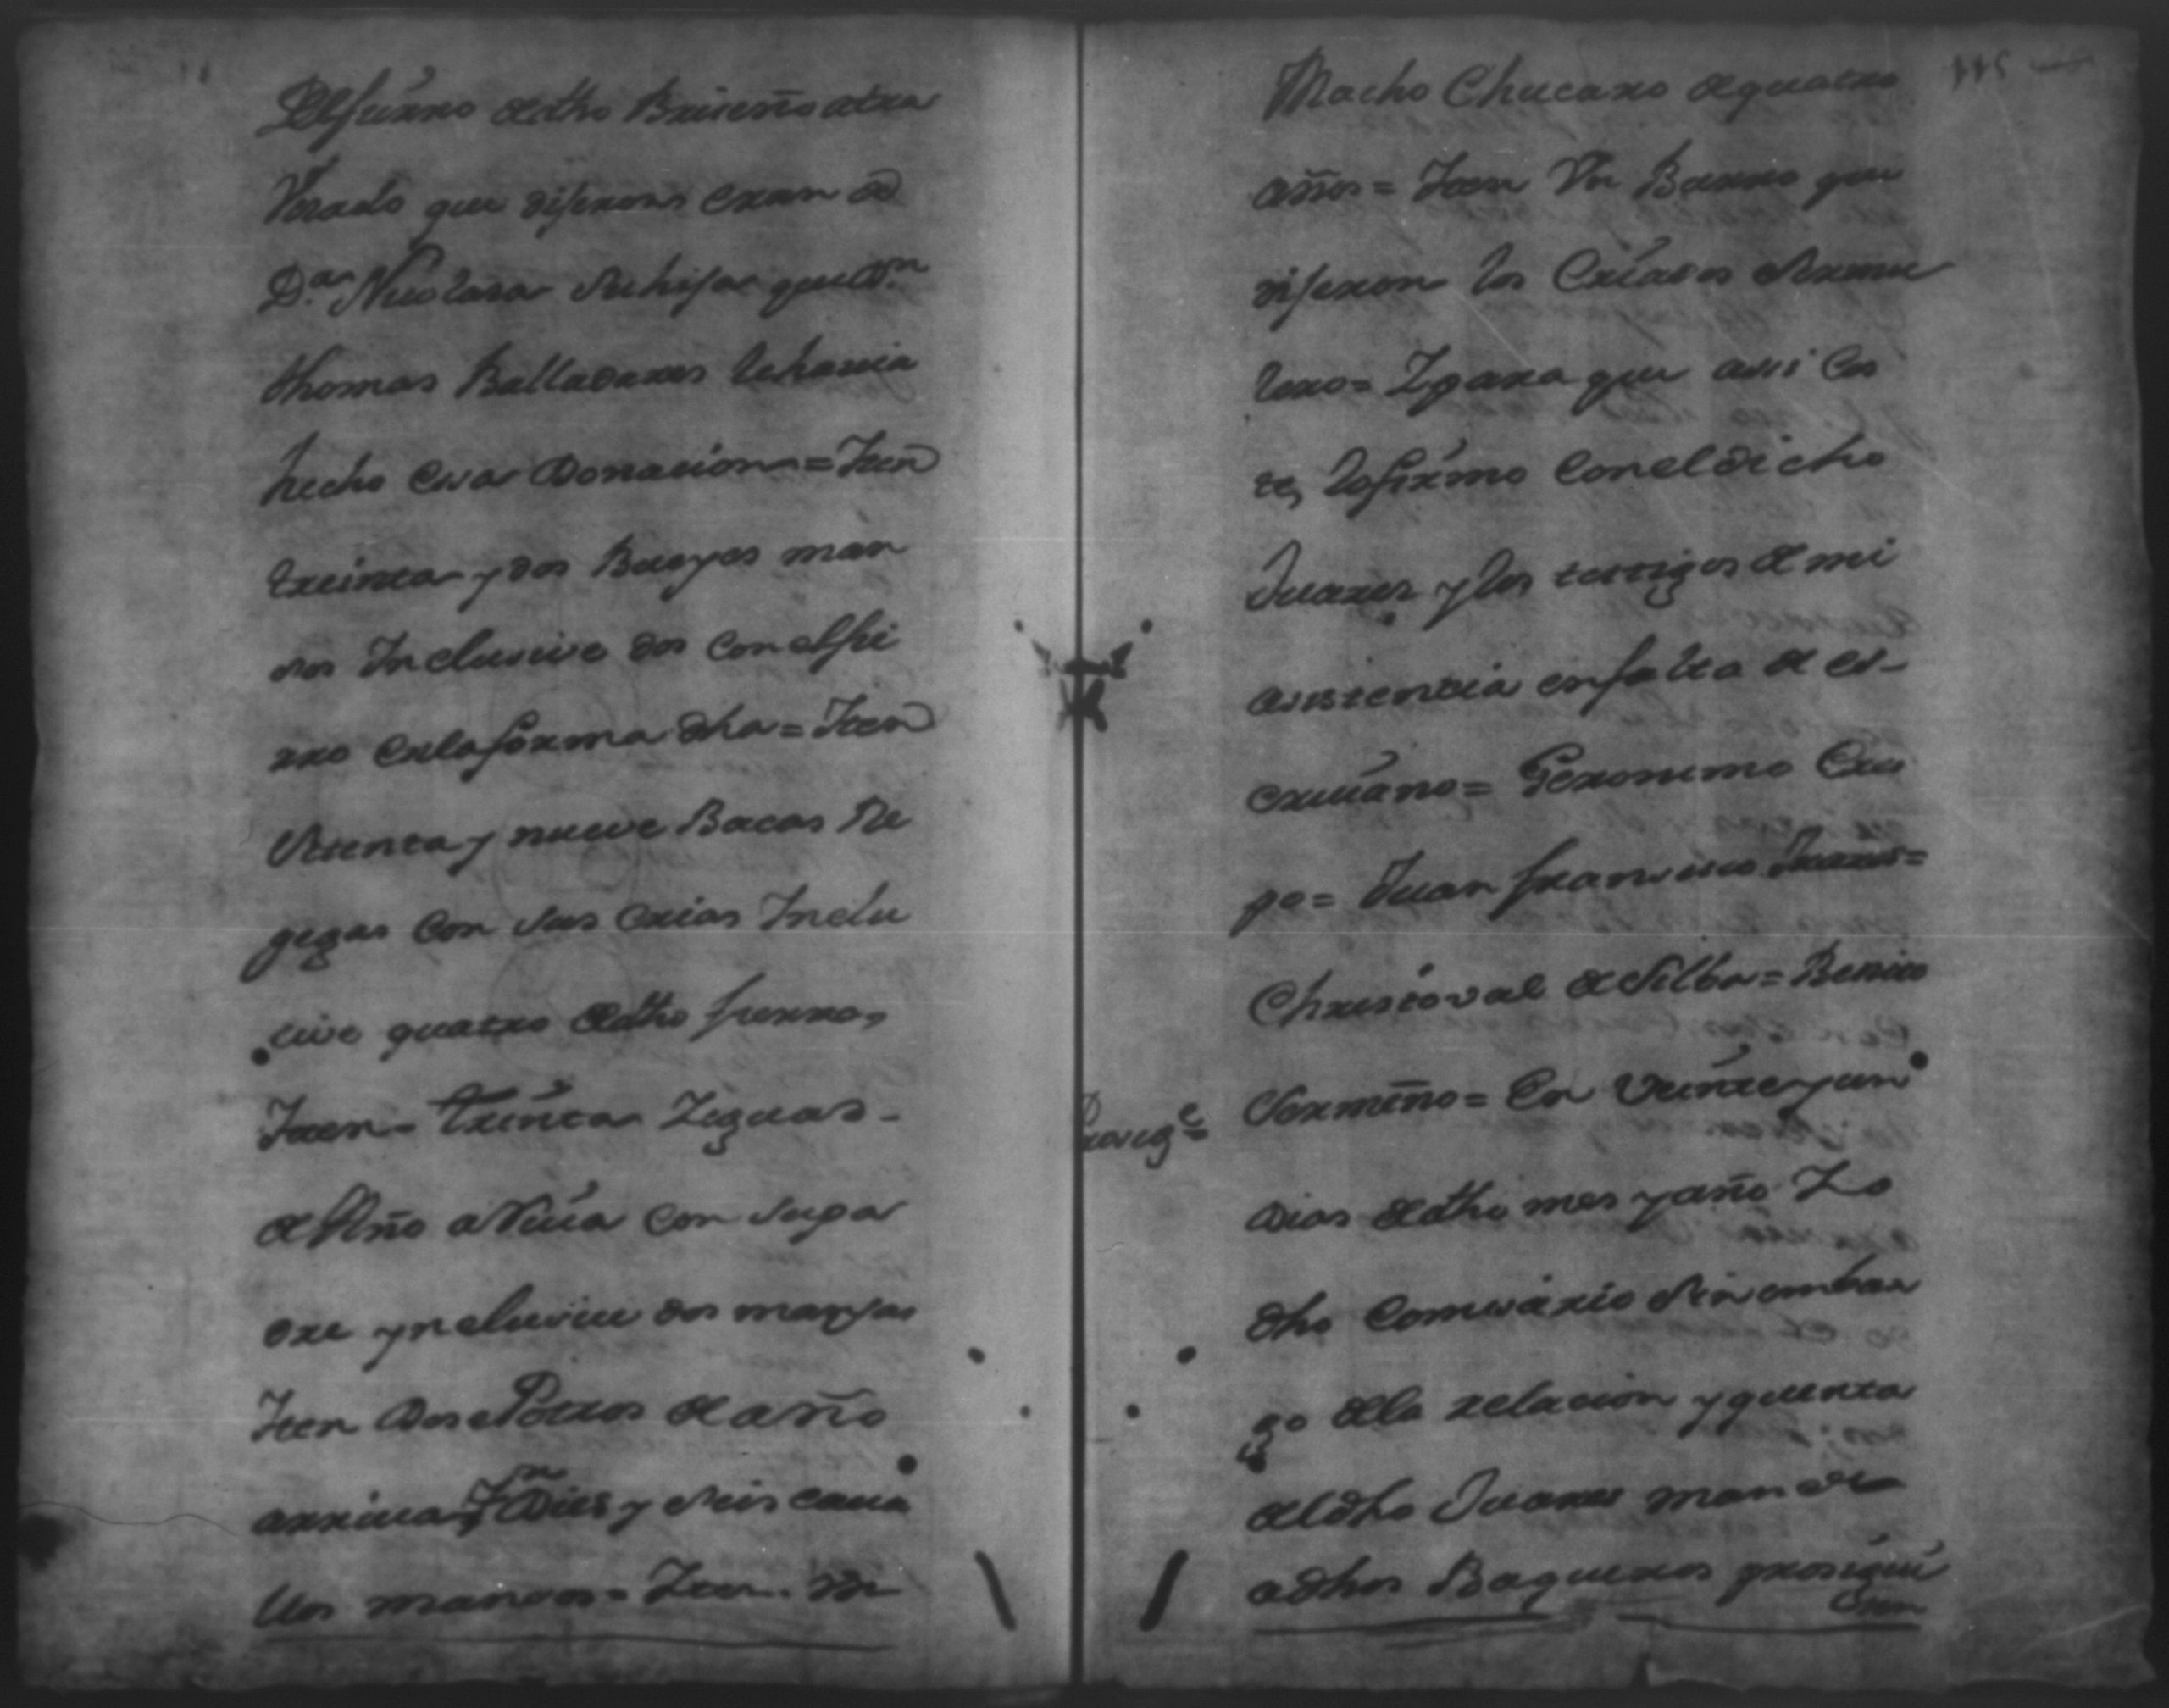 Del fierro de dho Briseño atra
vesado que dijeron eran de
D.ª Nicolasa su hija que D.n
thomas Balladares le havia
hecho esa Donacion = Iten
treinta y dos Bueyes man
sos Inclusive dos con el fie
rro en la forma dha = Iten
setenta y nueve Bacas Re
gegas con sus crias Inclu
cive quatro de dho fierro,
Iten = treinta Yeguas -
de Año arriva con su pa
dre ynclusive dos mansas
Iten Dos Potros de año
arriva Yn Dies y seis cava
llos mansos = Iten. Un
Macho Chucaro de quatro
años = Iten Un Burro que
dijeron los Criados
lero = Y para que assi cons
te, lo firmo con el dicho
Juares y los testigos de mi
asistencia en falta de es-
crivano = Geronimo Cres
po = Juan francisco Juares =
Christoval de Silba = Benito
Sermeño = En veinte y un
Prosigue
dias de dho mes y año Yo
dho Comisario sin embar
go de la relacion y quenta
del dho Juares mande
a dhos Baqueros prosigui
esen